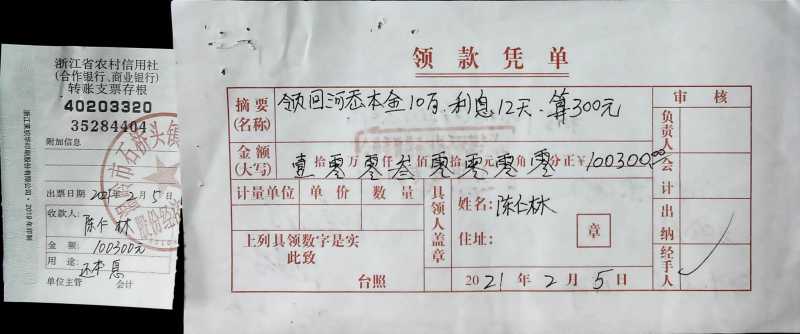 浙江省农村信用社
(合作银行、商业银行)
转账支票存根
40203320
35284404
附加信息
出票日期 2021年 2月 5日
收款人:
陈仁林
金 额: 100300元
用 途: 还本息
单位主管 会计
领款凭单
摘要
(名称)
领回河岙本金10万.利息12天.算300元
金额
(大写)
壹拾零万零仟叁佰零拾零元零角零分正¥100300.00
计量单位 单价 数量
上列具领数字是实
此致
台照
具领人盖章
姓名: 陈仁林
住址:
章
2021年 2月 5日
审核
负责人
会计
出纳
经手人